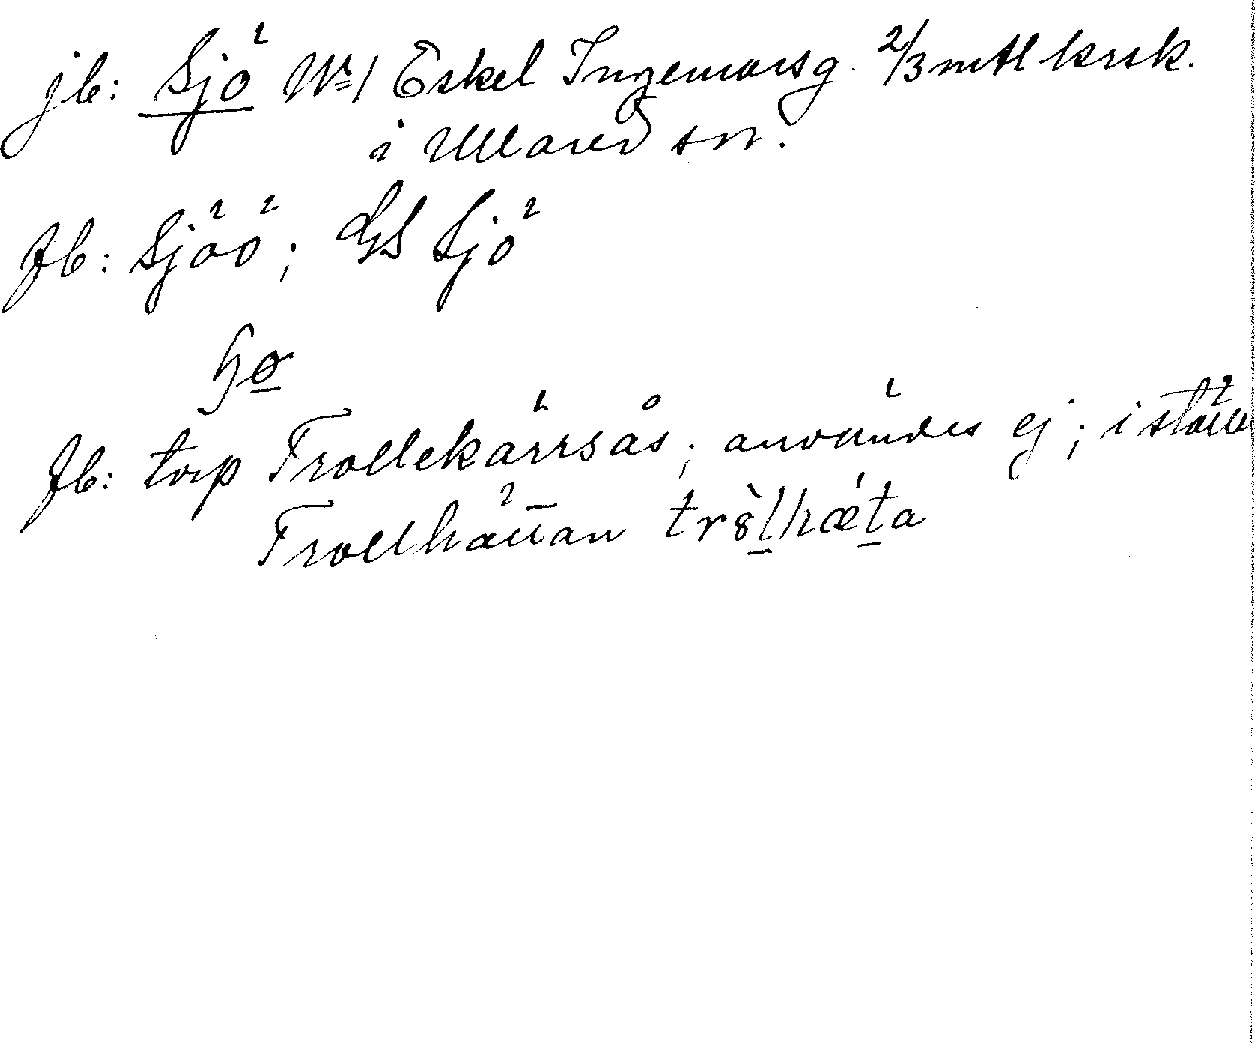 jb: Sjö No 1 Eskel Ingemarsg. 2/3 mtl krsk.
i Ullared sn.
fb: Sjöö; GS Sjö
fb: torp Trollekärrsås; användes ej; i stället
Trollhättan